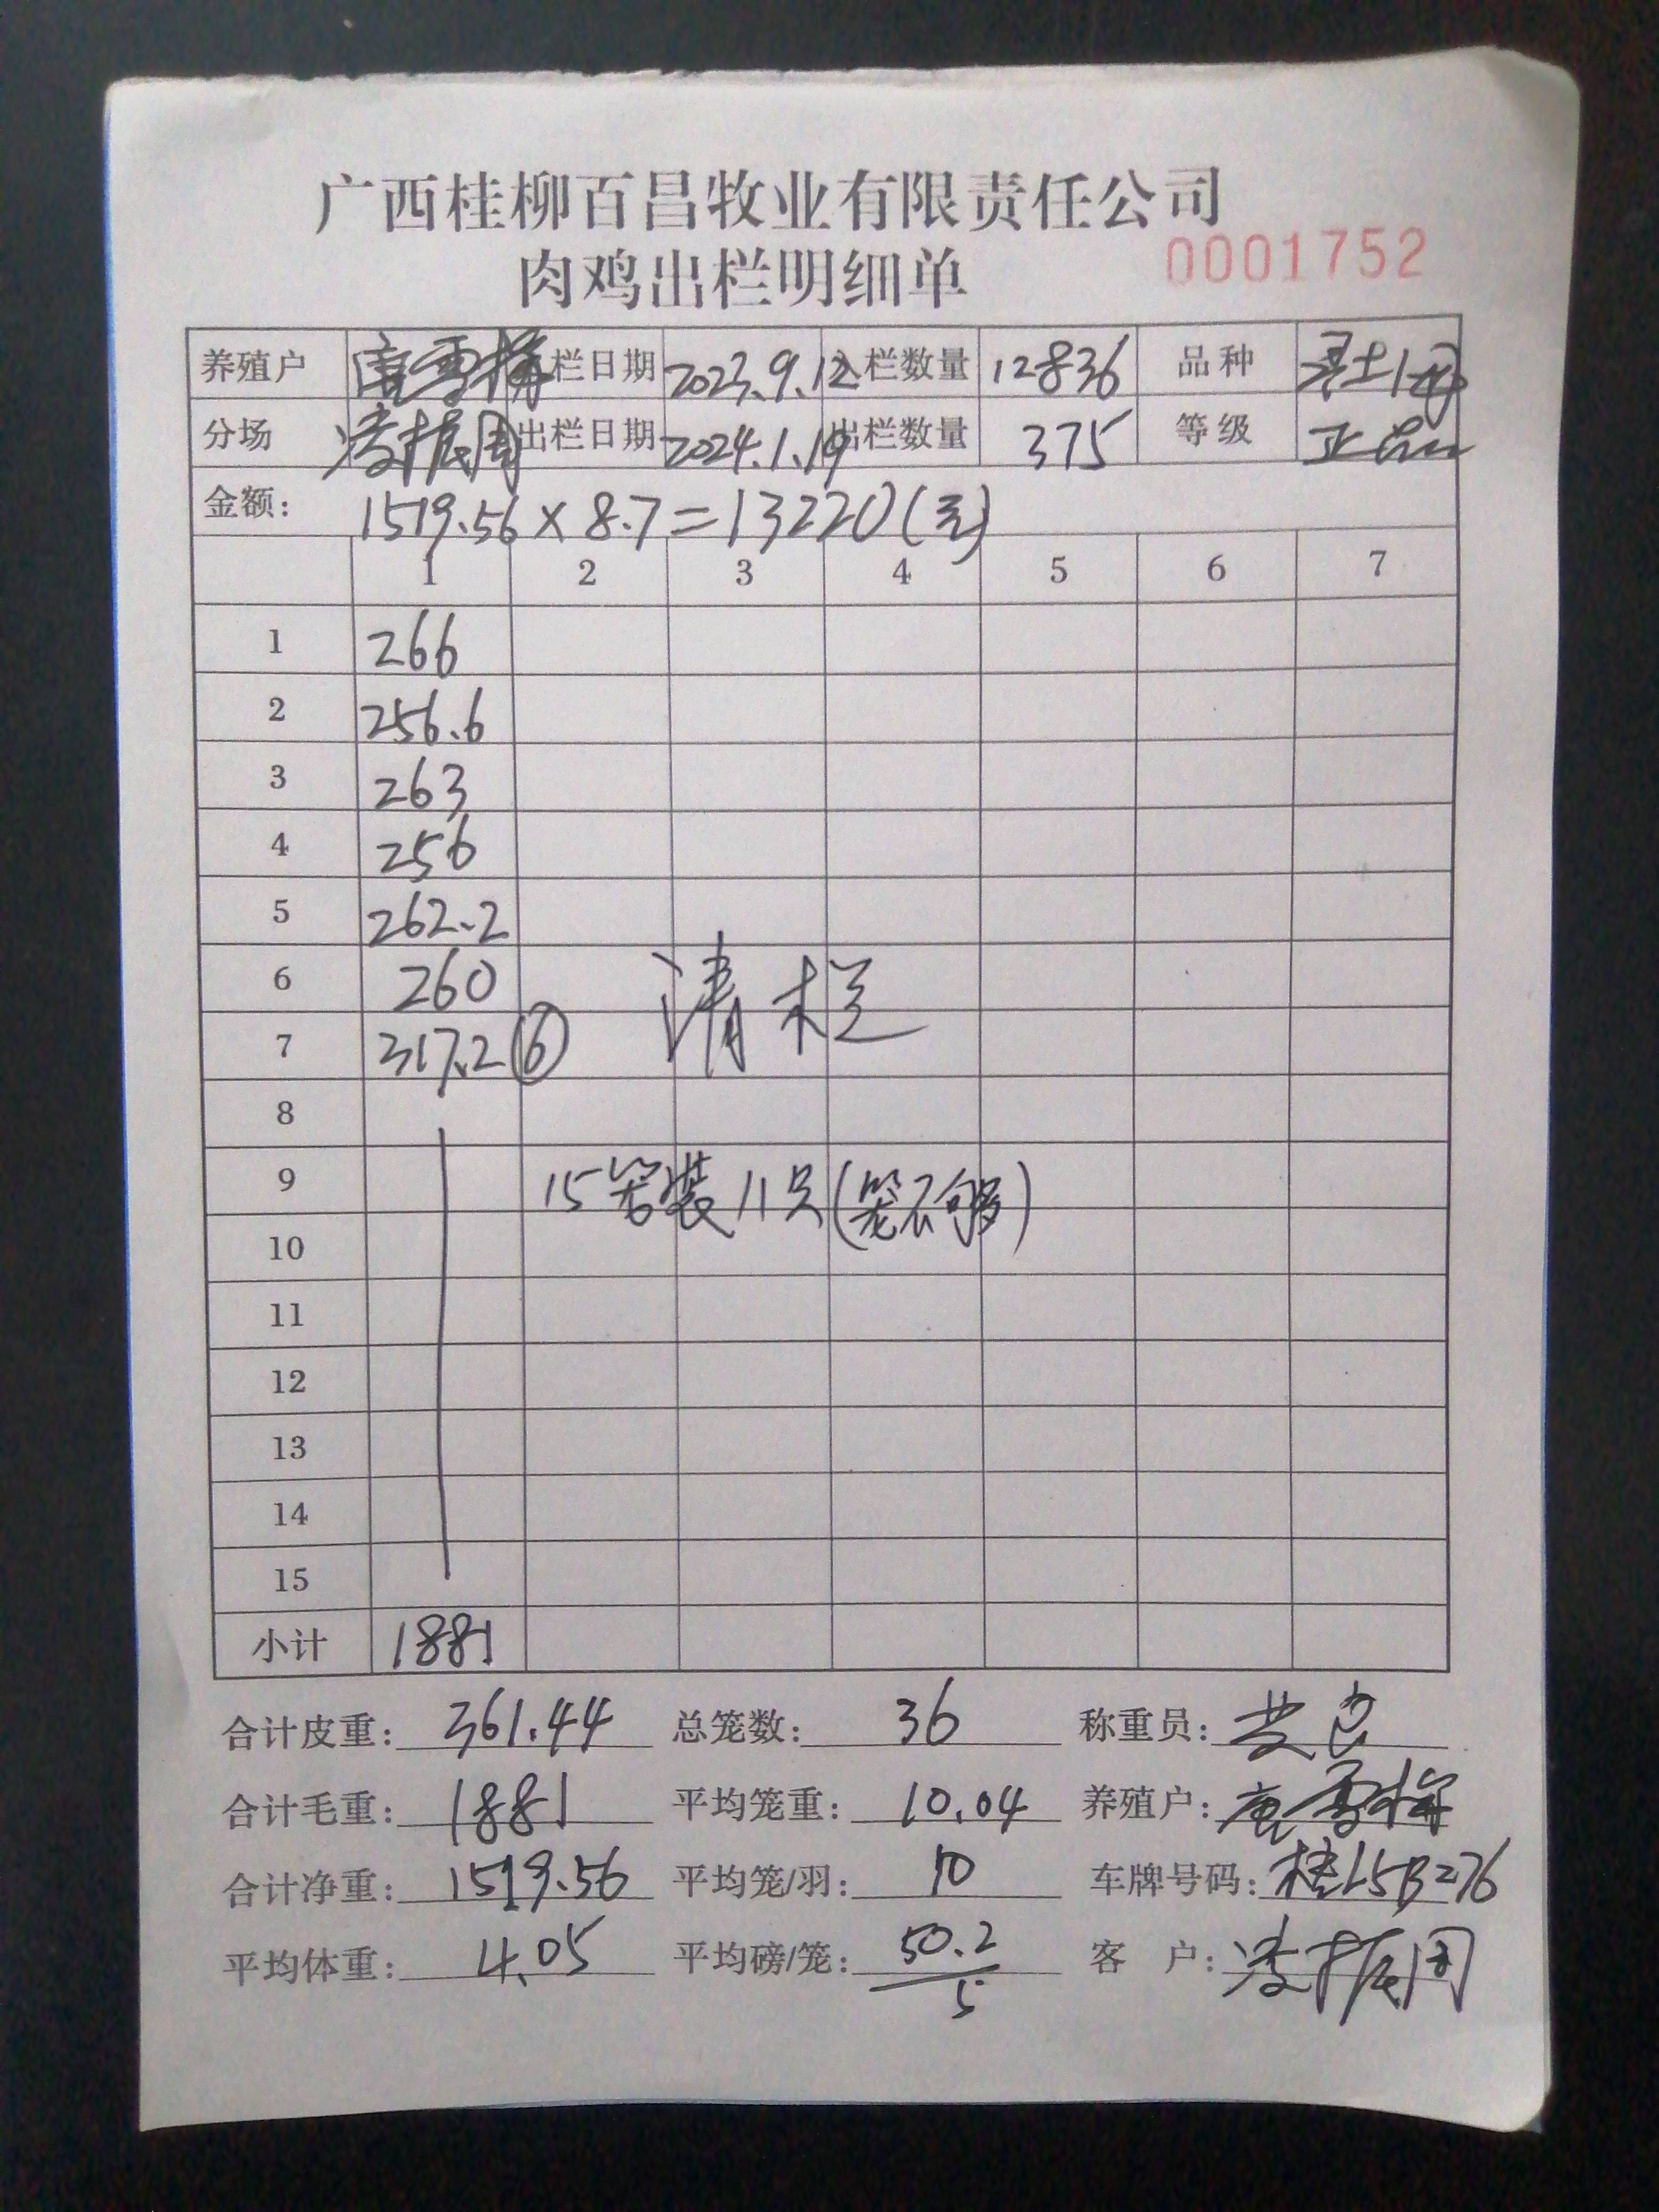 广西桂柳百昌牧业有限责任公司
肉鸡出栏明细单 0001752
养殖户 唐雪梅 入栏日期 2023.9.12 入栏数量 12836 品种 土1母
分场 凌振周 出栏日期 2024.1.19 出栏数量 375 等级 正品
金额: 1519.56×8.7=13220(元)
1 2 3 4 5 6 7
1 266
2 256.6
3 263
4 256
5 262.2
6 260
7 317.2 ⑥ 清栏
8
9 15笼装11只(笼不够)
10
11
12
13
14
15
小计 1881
合计皮重: 361.44 总笼数: 36 称重员:
合计毛重: 1881 平均笼重: 10.04 养殖户: 唐雪梅
合计净重: 1519.56 平均笼/羽: 10 车牌号码: 桂L5B276
平均体重: 4.05 平均磅/笼: 50.2/5 客户: 凌振周